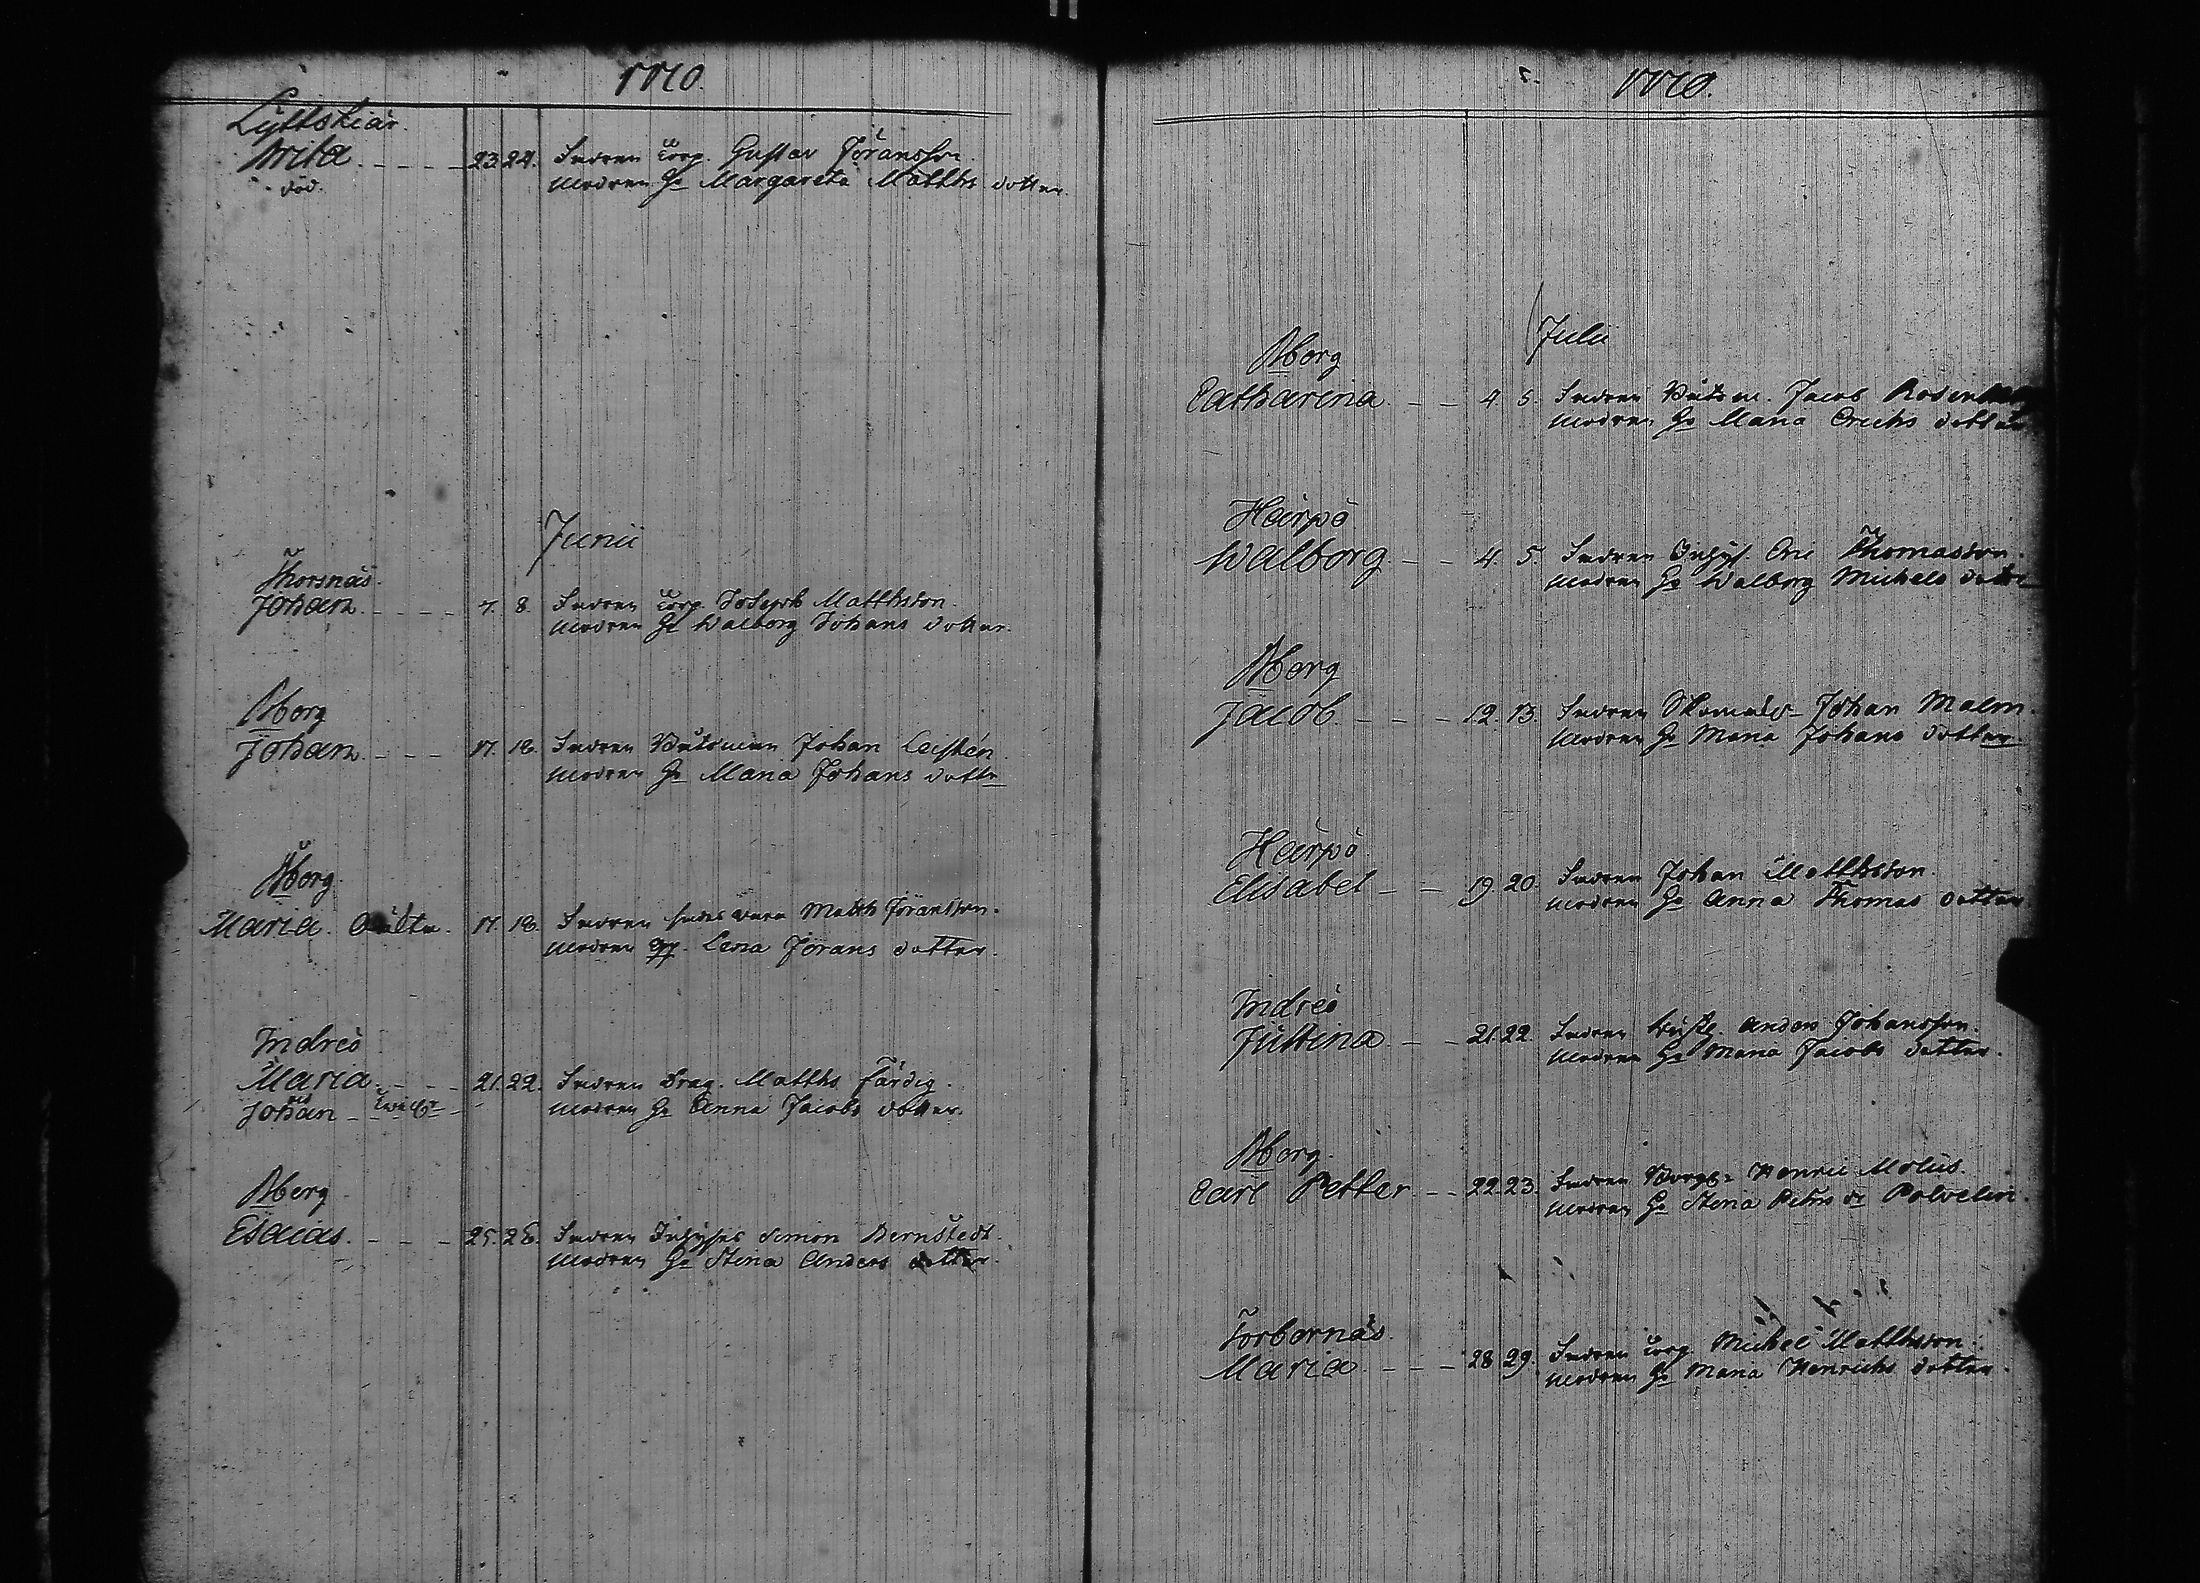 1770.
Lyttskiär.
Brita 23. 24. Fadren Torp. Gustav Jöransson.
död. modren H: Margareta Matths dotter.
Junii
Thorsnäs.
Johan 7. 8. Fadren Torp. Joseph Matthsson.
modren H: Walborg Johans dotter.
Bborg
Johan 17. 18. Fadren Båtsman Johan
modren H: Maria Johans dotter
Bborg.
Maria. 17. 18. Fadren Matth Jöransson.
modren Lena Jörans dotter.
Indreö
Maria 21. 22. Fadren Drag. Matths Färdig.
och
Johan modren H: Anna Jacobs dotter.
Bborg
Esaias. 25. 26. Fadren Inhyses Simon Bernstedt.
modren H: Stina Anders dotter.
1770.
Julii
Bborg
Catharina 4 5. Fadren Båtsm. Jacob
modren H: Maria Erichs dotter
Harpö
Walborg 4. 5. Fadren Inhys. Eric Thomasson.
modren H: Walborg Michels dotter
Bborg
Jacob 12. 13. Fadren Johan Malm.
modren H: Maria Johans dotter
Harpö
Elisabet 19. 20. Fadren Johan Matthsson.
modren H: Anna Thomas dotter
Indreö
Justina 21. 22. Fadren Anders Johansson.
modren H: Maria Jacobs dotter.
Bborg.
Carl Petter 22. 23. Fadren Borg: Henric Molús.
modren H: Stina Polvelin.
Torbornäs.
Maria 28 29. Fadren Torp. Michel Matthsson.
modren H: Maria Henrichs dotter.